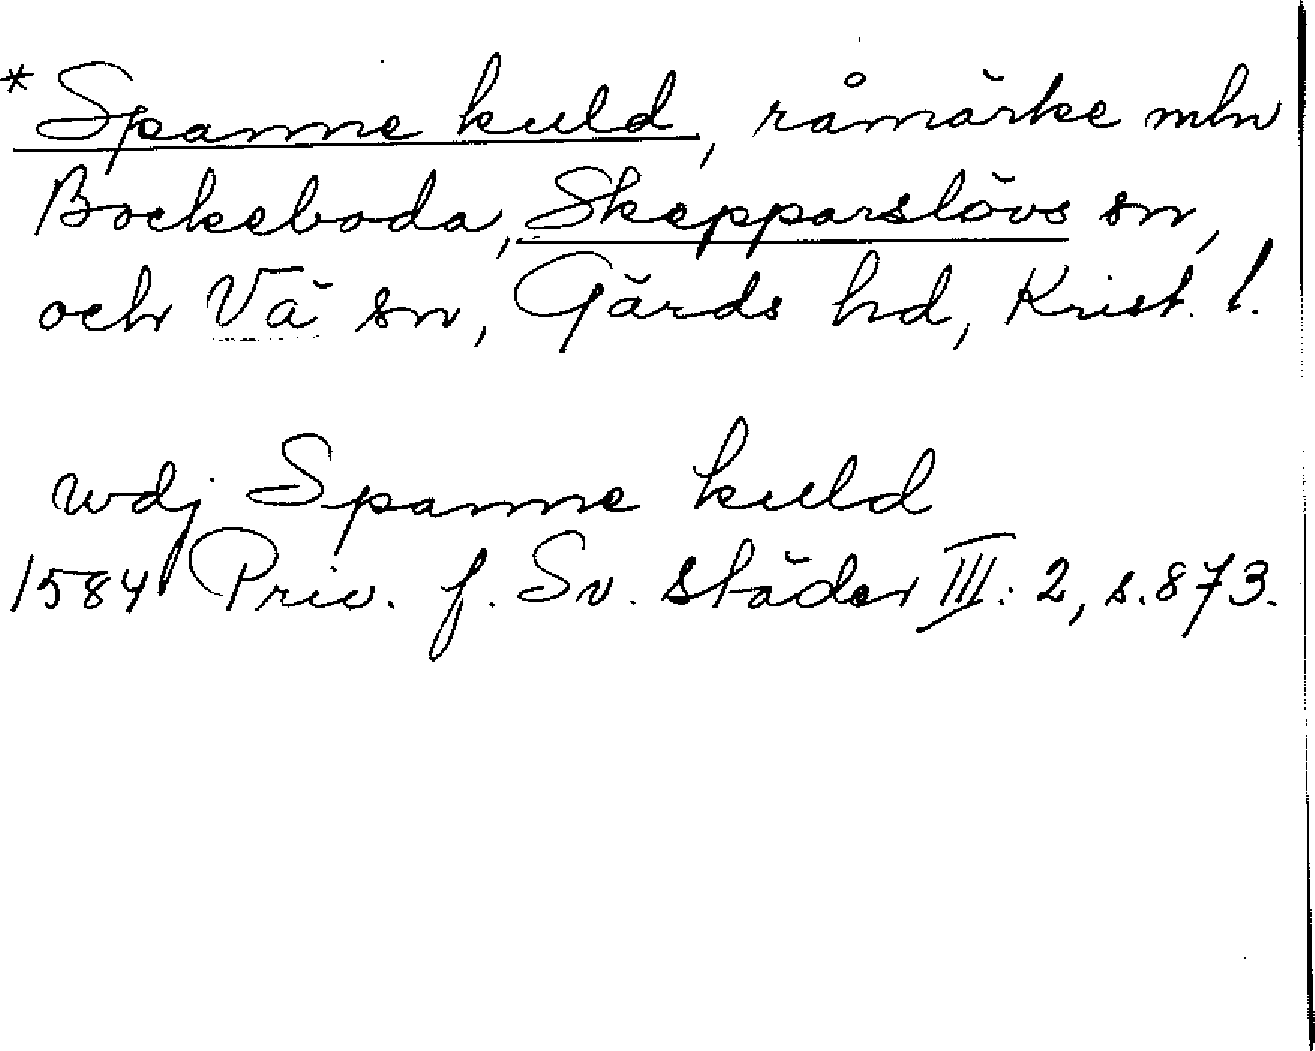 *Spanne kuld, råmärke mln
Bockeboda, Skepparslövs sn,
och Vä sn, Gärds hd, Krist. l.
wdj Spanne kuld
1584 Priv. f. Sv. städer III: 2, s. 873.